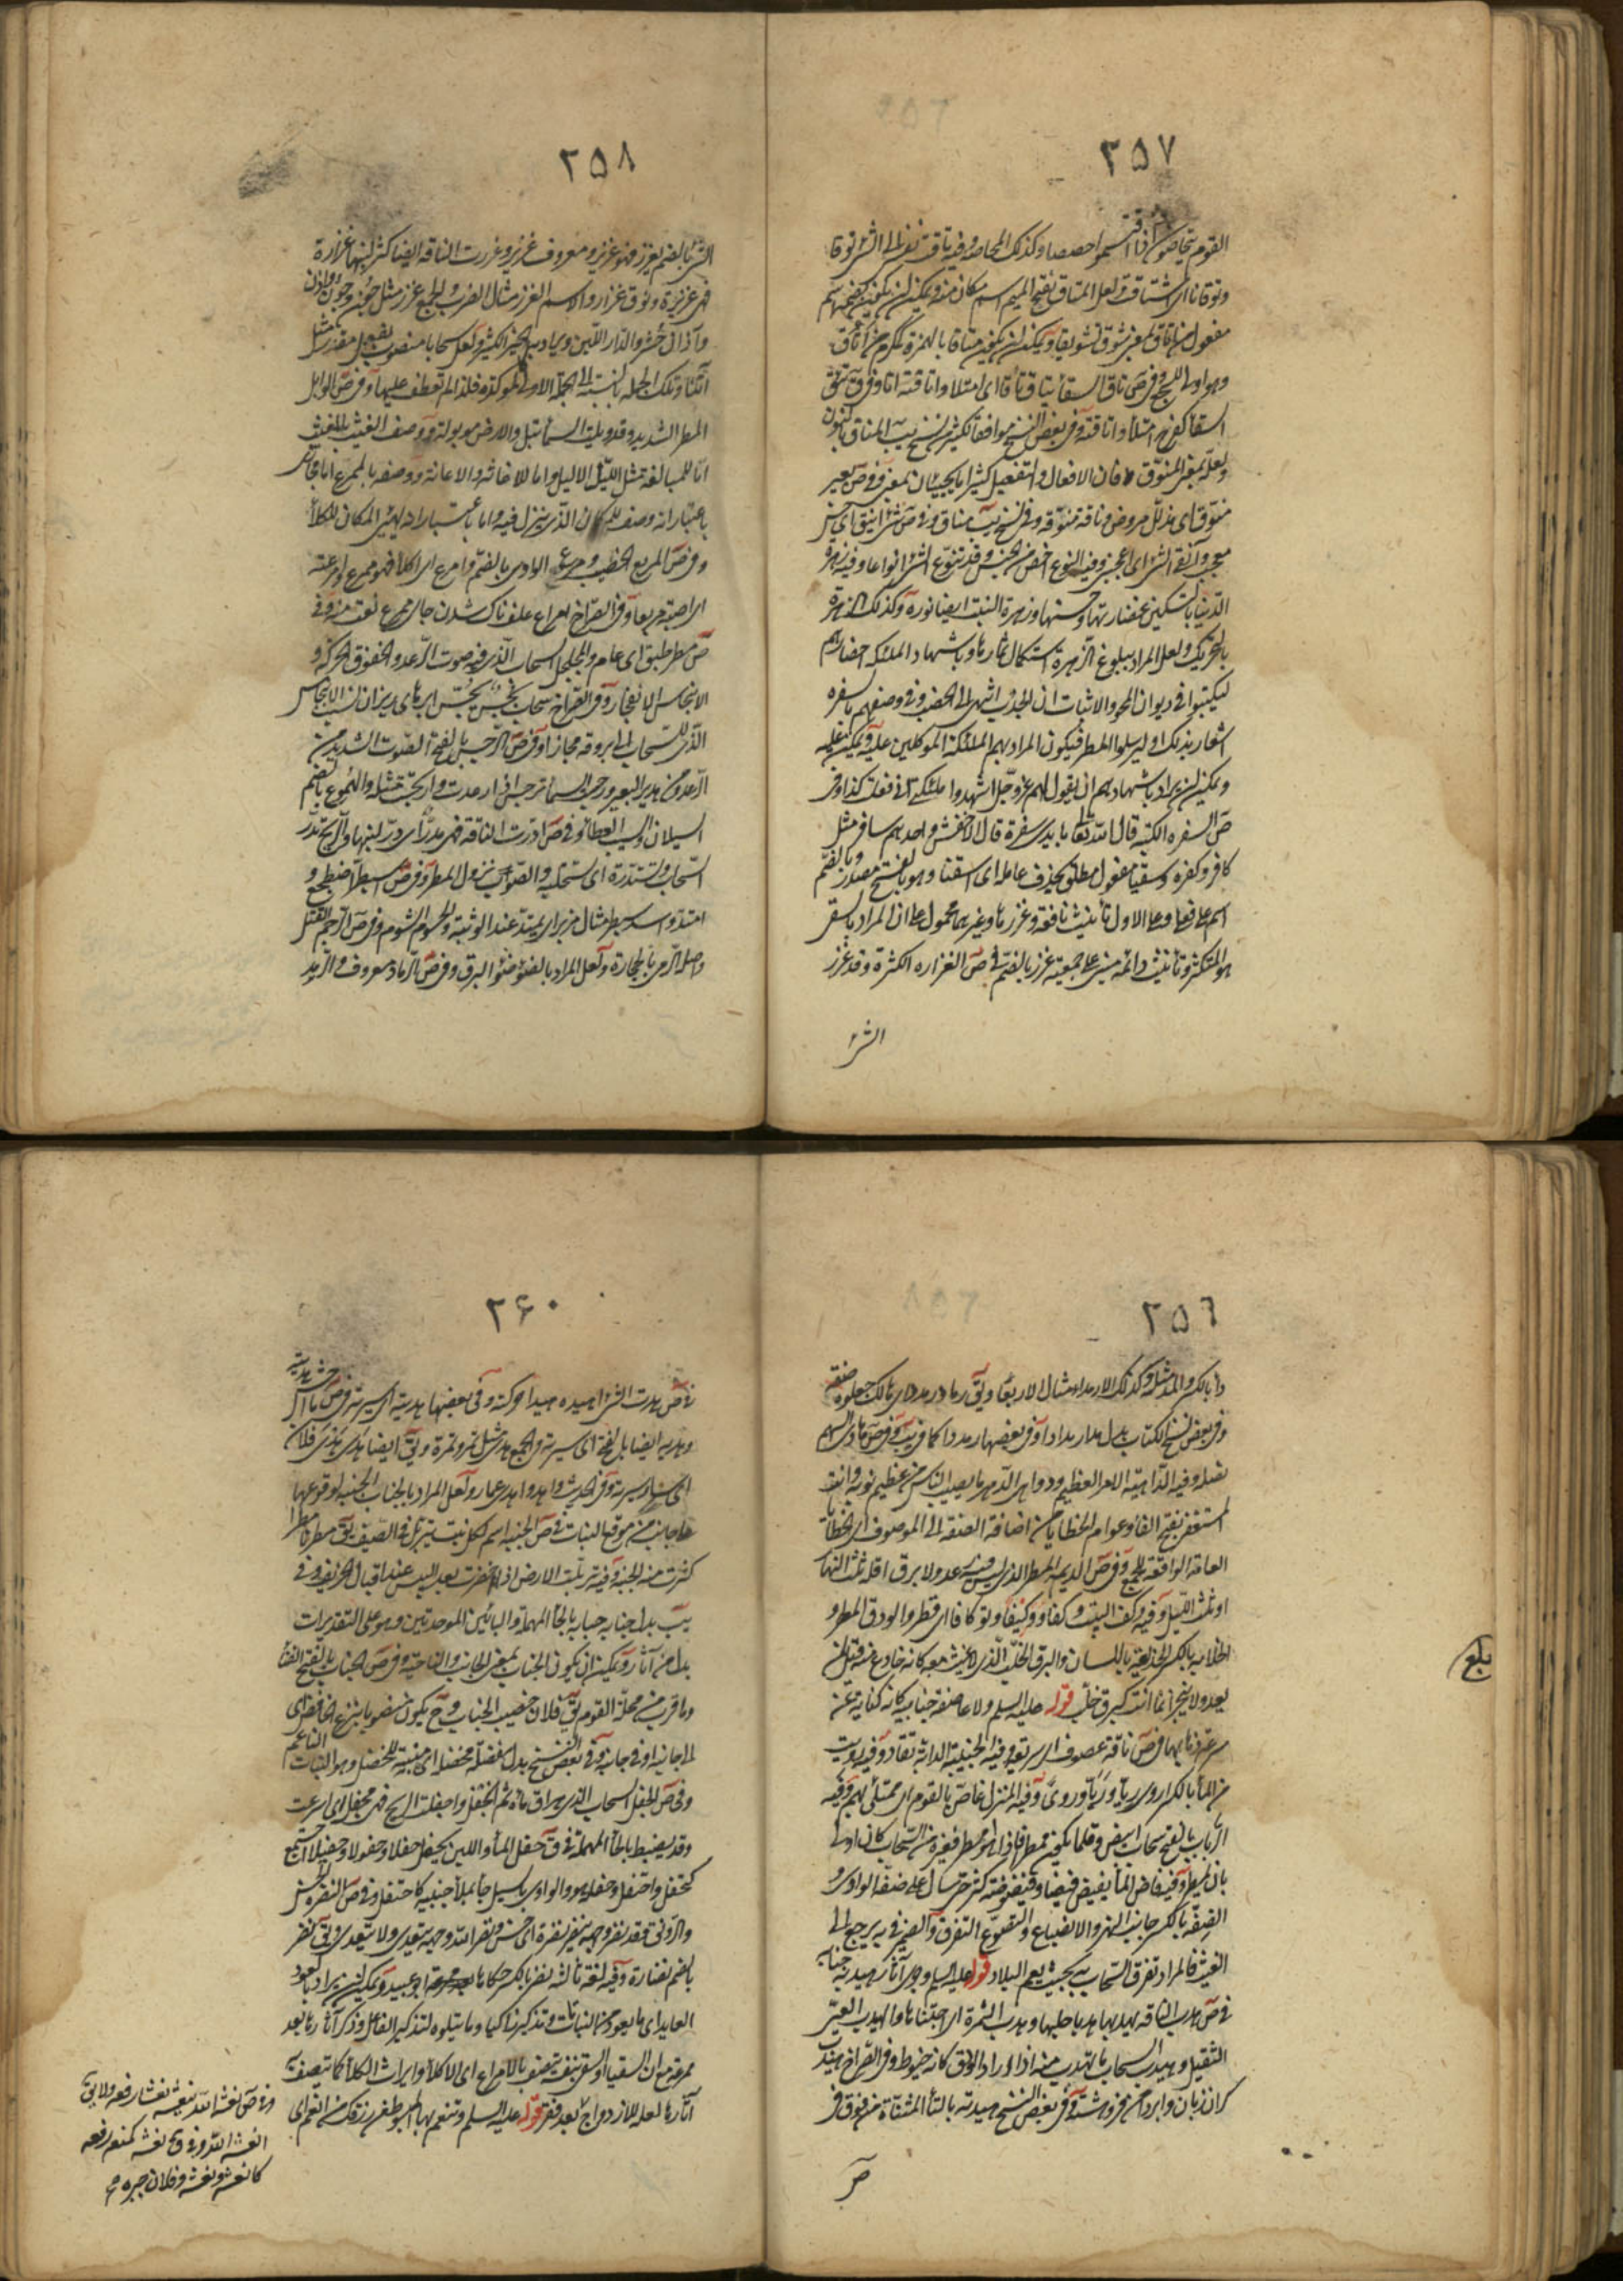 ٢٥٧
القوم يتحاصون اذا اقتسموا حصصا وكذلك المحاصة وفيه تاقت نفسى الى الشئ توقا
وتوقانا اى اشتاقت ولعل المتاق بفتح الميم اسم مكان منه ويمكن ان يكون بضمها اسم
مفعول من اتاق بمعنى شوق تشويقا ويمكن ان يكون متاقا بالهمزة مكرم من اتأق
وهو اولى للسجع وفى ص تاق السقأ يتاق تأقا اى امتلا واتاقته انا وفى ق تئق
السقأ كفرح امتلأ واتاقته وفى بعض النسخ موافقا لكثير من نسخ يب المناق بالنون
ولعله بمعنى المنوق فان الافعال والتفعيل كثيرا ما يجيئان بمعنى وفى ص بعير
منوق اى مذلل مروض وناقة منوقة وفى نسخ يب مناق وفى ص شئ انيق اى حسن
معجب وآنقنى الشئ اى اعجبنى وفيه النوع اخص من الجنس وقد تنوع الشئ انواعا وفيه زهرة
الدنيا بالتسكين غضارتها وحسنها وزهرة النبت ايضا نوره وكذلك الزهرة
بالتحريك ولعل المراد ببلوغ الزهرة استكمال ثمارها وباشهاد الملئكة احضارهم
ليكتبوا فى ديوان المحو والاثبات ان الجدب انتهى الى الخصب وفى وصفهم بالسفرة
اشعار بذلك او ليرسلوا المطر فيكون المراد بهم الملئكة الموكلين عليه
ويمكن ان يراد باشهادهم ان يقول لهم عز وجل اشهدوا ملئكتى انى فعلت كذا وفى
ص السفرة الكتبة قال الله تعا بايدى سفرة قال الاخفش واحدهم سافر مثل
كافر وكفرة وسقيا مفعول مطلق بحذف عامله اى اسقنا وهو بالفتح مصدر وبالضم
اسم على فعلى وعلى الاول تأنيث نافعة وغزرها وغيرهما محمول على ان المراد بالسقى
هو المتكثر وتأنيث دائمة مبنى على جمعية غزر بالضم فى ص الغزارة الكثرة وقد غزر
الشئ
٢٥٨
الشئ بالضم يغزر فهو غزير ومعروف غزير وغزرت الناقة ايضا كثر لبنها غزارة
فهى غزيرة ونوق غزار والاسم الغزر مثال الضرب والجمع غزر مثل جون وجون واذن
وآذان حشر والدار اللبن ويراد به الخير الكثير ولعل سحابا منصوب بفعل مقدر مثل
آتنا وتلك الجملة بالنسبة الى الجملة الاولى كالموكدة فلذا لم تعطف عليها وفى ص الوابل
المطر الشديد وقد وبلت السمأ تبل والارض موبولة ووصف الغيث بالمغيث
اما للمبالغة مثل الليل الاليل واما للاغاثة والاعانة ووصفه بالممرع اما مجاز
باعتبار انه وصف للمكان الذى ينزل فيه واما باعتبار انه يهيئ المكان للكلأ
وفى ص المريع الخصيب ومرع الوادى بالضم وامرع اى اكلأ فهو ممرع وامرعته
اى اصبته مريعا وفى الصراخ امراع علفناك شدن جاى ممرع نعت منه وفى
ص مطر طبق اى عام والمجلجل السحاب الذى فيه صوت الرعد والخفوق الحركة و
الانبجاس الانفجار وفى الصراح سحائب بجس ابرهاى ريزان نسب الانبجاس
الذى للسحاب الى بروقه مجازا وفى ص الرجس بالفتح الصوت الشديد من
الرعد ومن هدير البعير ورجست السمأ ترجس اذا رعدت وارتجست مثله والهموع بالضم
السيلان والسيب العطأ وفى ص ادرت الناقة فهى مدر اى در لبنها والريح تدر
السحاب وتستدره اى تستحلبه والصوب نزول المطر وفى ص اسبطر اضطجع و
امتد واسد سبطر مثال هزبر اى يمتد عند الوثبة والحسوم الشوم وفى ص الرجم القتل
واصله الرمى بالحجارة ولعل المراد بالضوء ضوء البرق وفى ص الرماد معروف والرمدد
٢٥٦
دأ بالكسر والمد مثله وكذلك الارمداء مثال الاربعا ويق رماد رمدد اى هالك جعلوه صفة
وفى بعض نسخ الكتاب بدل مدارمدادا وفى بعضها رمددا كما فى يب وفى ص ماذى السم
نصله وفيه الداهية الامر العظيم ودواهى الدهر ما يصيب الناس من عظيم نوبه وانت
المستغفر بفتح الفأ وعوام الخطايا من اضافة الصفة الى الموصوف اى الخطايا
العامة الواقعة للجميع وفى ص الديمة المطر الذى ليس فيه رعد ولا برق اقله ثلث النهار
او ثلث الليل وفيه وكف البيت وكفا ووكيفا وتوكافا اى قطر والودق المطر و
الخلابة بالكسر الخديعة باللسان والبرق الخلب الذى لا غيث معه كانه خادع ومنه قيل لمن
يعد ولا ينجز انما انت كبرق خلب قوله عليه السلم ولا عاصفة جنائبه كانه كناية عن
سرعة ذهابها فى ص ناقة عصوف اى سريعة وفيه الجنيبة الدابة تقاد وفيه رويت
من المأ بالكسر اروى ريا وريا وروى وفيه المنزل غاص بالقوم اى ممتلئ بهم وفيه
الرباب بالفتح سحاب ابيض وقلما يكون ممطرا فاذا هو امطر فغيره من السحاب كان اولى
بان يمطر وفيه فاض المأ يفيض فيضا وفيضوضة كثر حتى سال على ضفة الوادى و
الضفة بالكسر جانب النهر والانصياع والتصوع التفرق والضمير فى به يرجع الى
الغيث فالمراد تفرق السحاب به بحيث يعم البلاد قوله عليه السلم وجرى آثار هيدبه جنابه
فى ص هدب الناقة يهدبها هدبا حلبها وهدب الثمرة اى اجتناها والهيدب العيى
الثقيل وهيدب السحاب ما تهدب منه اذا اراد الودق كانه خيوط وفى الصراح هيدب
كران زبان وابر دامن فروهشته وفى بعض النسخ هيدبته بالتأ المثناة من فوق فى
ص
٢۶٠
فى ص هدبت الشئ اهيده هيدا حركته وفى بعضها هديته اى سيرته فى ص ما احسن هديته
وهديه ايضا بالفتح اى سيرته والجمع هدى مثل تمر وتمرة ويق ايضا هدى هدى فلان
اى سار سيرته وفى الحديث واهدوا هدى عمار ولعل المراد بالجناب الجنبة لوقوعها
على جانب من موقع النبات فى ص الجنبة اسم لكل نبت يتربل فى الصيف يق مطرنا مطرا
كثرت منه الجنبة وفيه تربلت الارض اذا اخضرت بعد اليبس عند اقبال الخريف وفى
يب بدل جنابه حبابه بالحأ المهملة والبائين الموحدتين وهو على التقديرات
بدل من آثار ويمكن ان يكون الجناب بمعنى الجانب والناحية وفى ص الجناب بالفتح الفنأ
وما قرب من محلة القوم يق فلان خصيب الجناب وح يكون منصوبا بنزع الخافض اى
الى جانبه او فى جانبه وفى بعض النسخ بدل مفضلة مخضلة اى منبتة للخضل وهو النبات الناعم
وفى ص الجفل السحاب الذى هراق مأه ثم انجفل واجفلت الريح فهى مجفل اى اسرعت
وقد يضبط بالحأ المهملة فى ق حفل المأ واللبن يحفل حفلا وحفولا وحفيلا اجتمع
كتحفل واحتفل وحفله هو والوادى بالسيل جأ بملأ جنبيه كاحتفل وفى ص النضرة الحسن
والرونق وقد نضر وجهه ينضر نضرة اى حسن ونضر الله وجهه يتعدى ولا يتعدى ويق نضر
بالضم نضارة وفيه لغة ثالثة نضر بالكسر حكاها ابو عبيد ويمكن ان يراد بالعود
العايد اى ما يعود من النبات وتذكير زاكيا وما يتلوه لتذكير الفاعل وذكر آثارها بعد
ممرعة مع ان السقيا او السقى بنفسه يتصف بالامراع اى الاكلأ وايراث الكلأ كما يتصف به
آثارها لعله للازدواج لبعد فقر قوله عليه السلم وتنعم بها المبسوط فى رزقك من انعم اى
وفى ص نعشه الله ينعشه نعشا رفعه ولا يق
انعشه الله وفى ق نعشه كمنعه رفعه
كانعشه ونعشه وفلانا جبره
بلغ